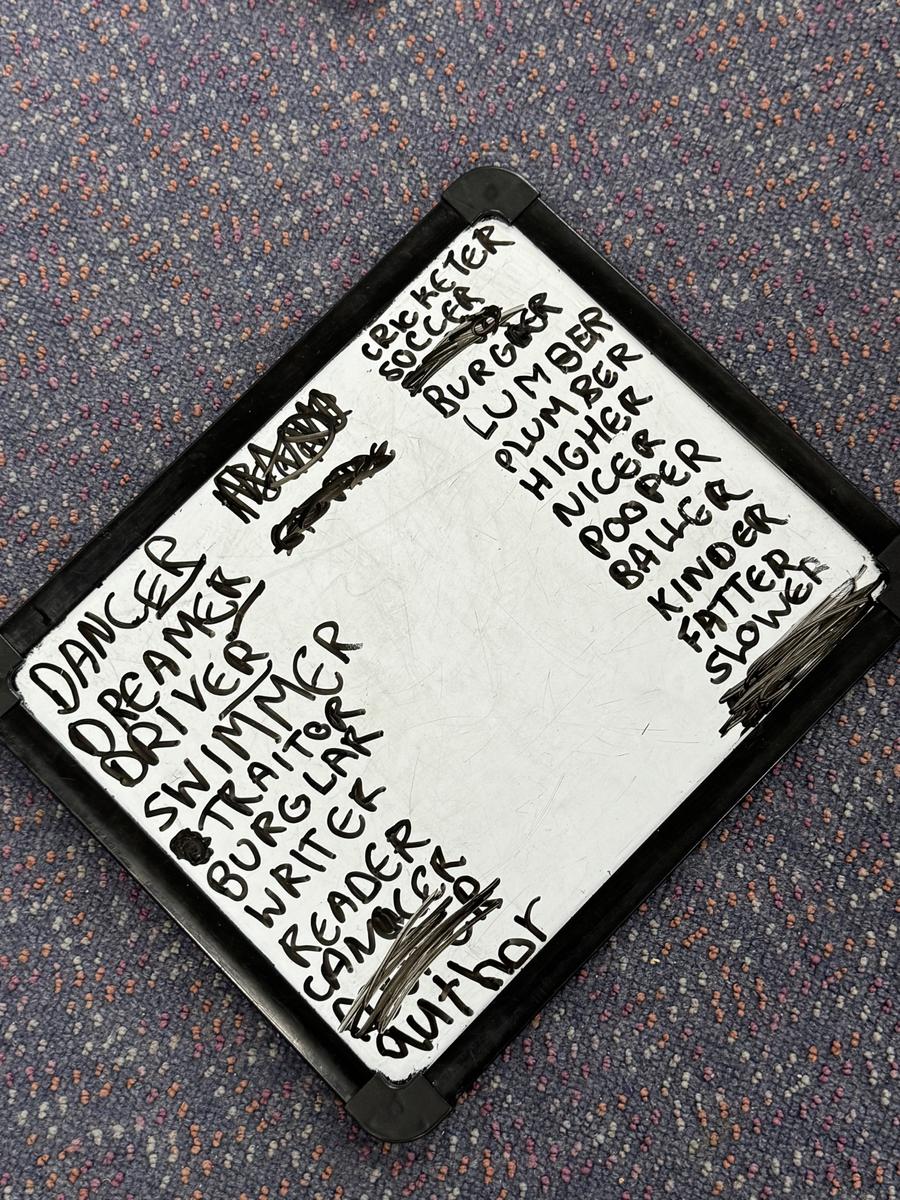 DANCER
DREAMER
DRIVER
SWIMMER
TRAITOR
BURGLAR
WRITER
READER
author
CRICKETER
SOCCER
BURGER
LUMBER
PLUMBER
HIGHER
NICER
POOPER
BALLER
KINDER
FATTER
SLOWER